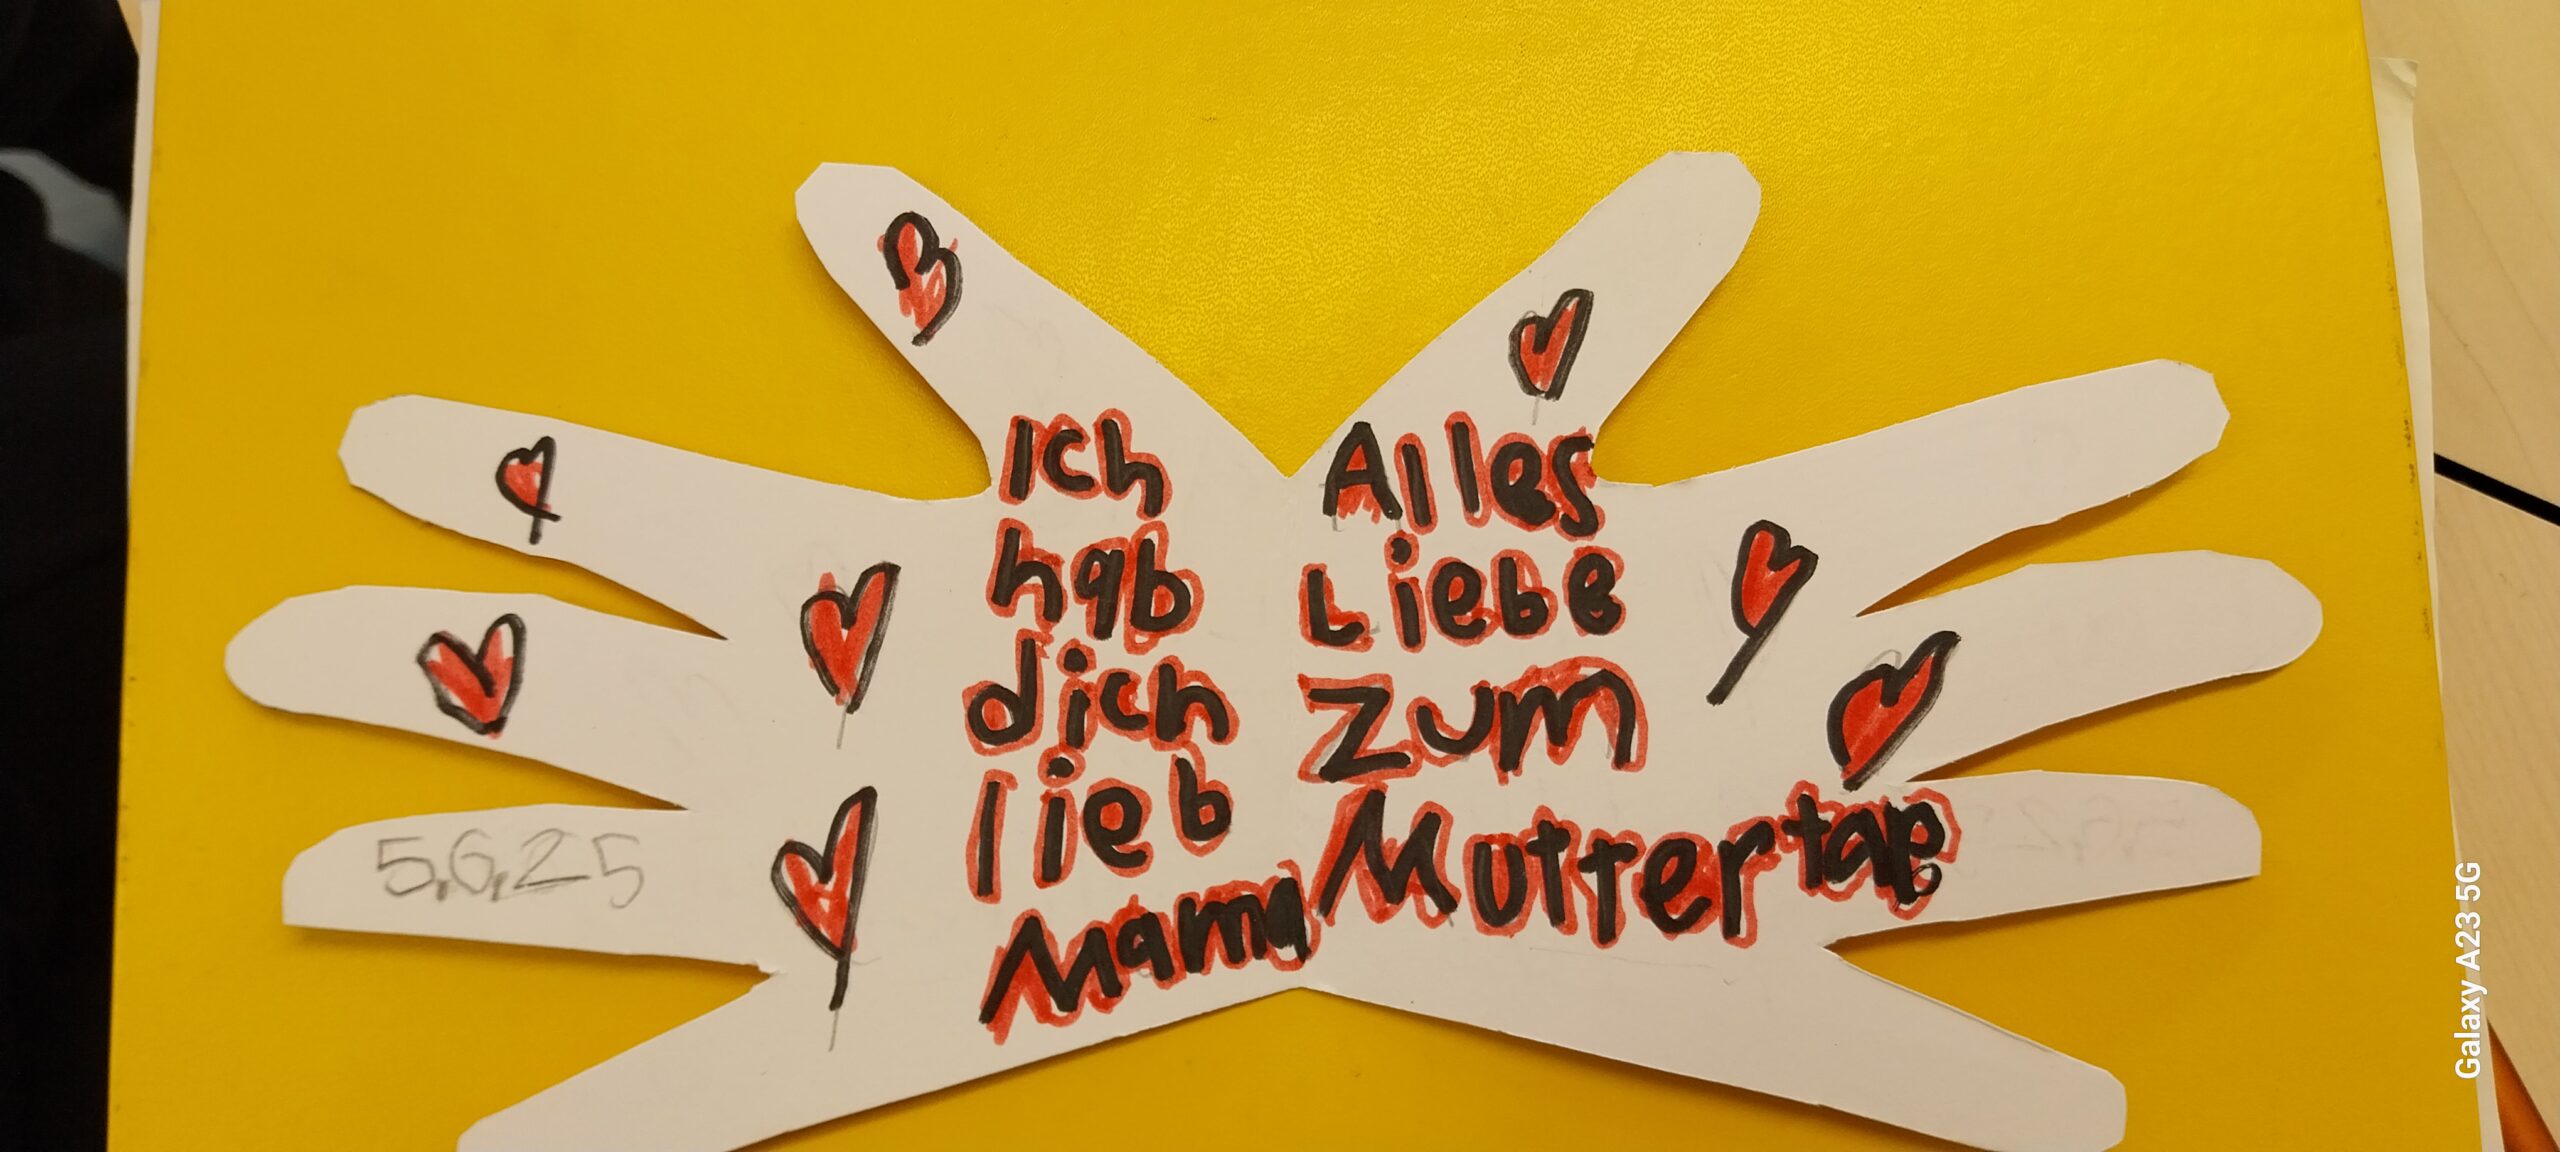 Ich
hab
dich
lieb
Mama
Alles
Liebe
zum
Muttertag
5,6,25
Galaxy A23 5G